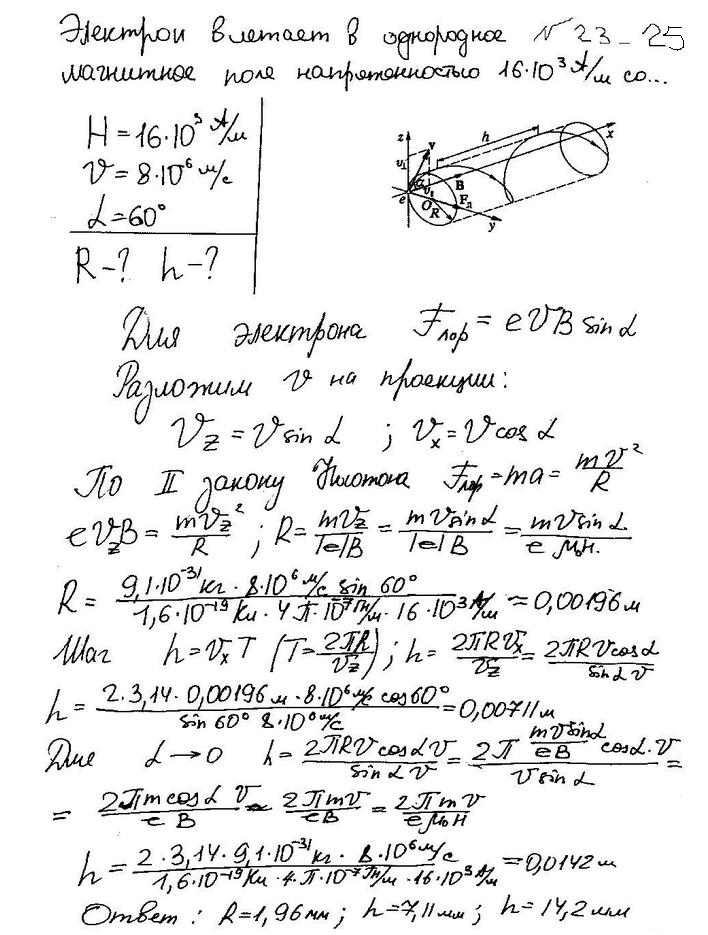 Электрон влетает в однородное № 23-25
магнитное поле напряженностью 16·10³ А/м со...
H = 16·10³ А/м
v = 8·10⁶ м/с
α = 60°
R-? h-?
z v h x
v⊥ α v∥ B
e F_л
O R y
Для электрона F_лор = e v B sin α
Разложим v на проекции:
v_z = v sin α ; v_x = v cos α
По II закону Ньютона F_лор = ma = mv²/R
e v_z B = mv_z²/R ; R = mv_z/|e|B = mv sin α/|e|B = mv sin α/e μ₀H.
R = 9,1·10⁻³¹ кг · 8·10⁶ м/с sin 60°/1,6·10⁻¹⁹ Кл · 4π·10⁻⁷ Гн/м · 16·10³ А/м ≈ 0,00196 м
Шаг h = v_x T (T = 2πR/v_z) ; h = 2πR v_x/v_z = 2πR v cos α/sin α v
h = 2·3,14·0,00196 м · 8·10⁶ м/с cos 60°/sin 60° 8·10⁶ м/с = 0,00711 м
Для α → 0 h = 2πR v cos α v/sin α v = 2π (mv sin α/eB) cos α · v/v sin α =
= 2πm cos α v/e B ≈ 2πmv/eB = 2πmv/e μ₀H
h = 2·3,14·9,1·10⁻³¹ кг · 8·10⁶ м/с/1,6·10⁻¹⁹ Кл · 4·π·10⁻⁷ Гн/м · 16·10³ А/м = 0,0142 м
Ответ: R = 1,96 мм ; h = 7,11 мм ; h = 14,2 мм